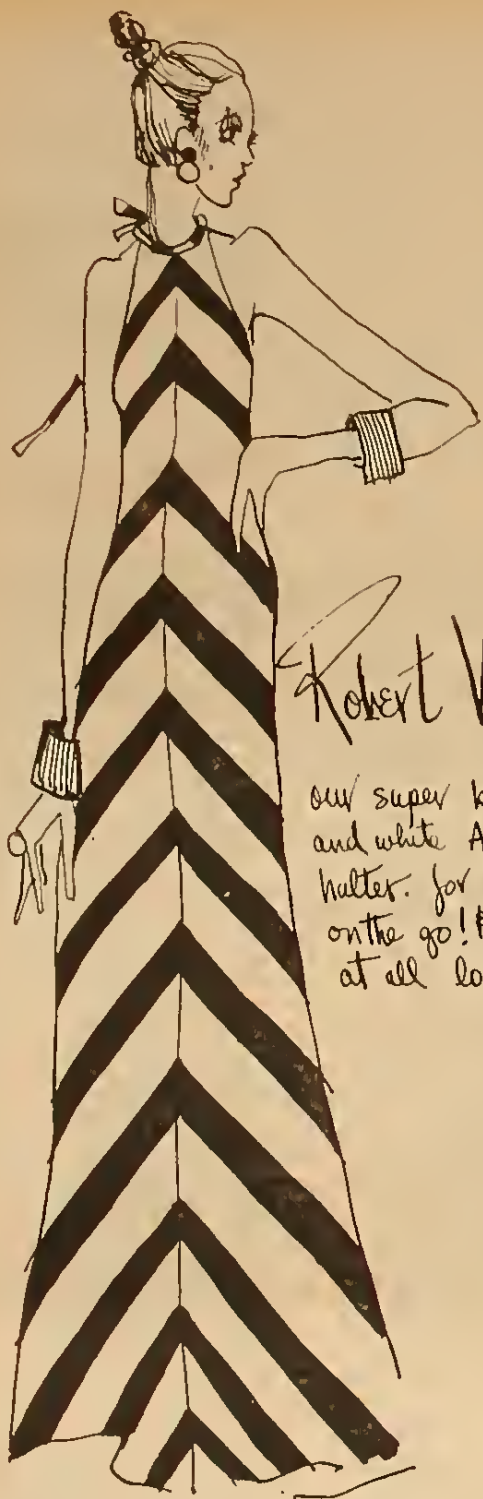 Robert
our super
and white
halter. for
on the go!
at all